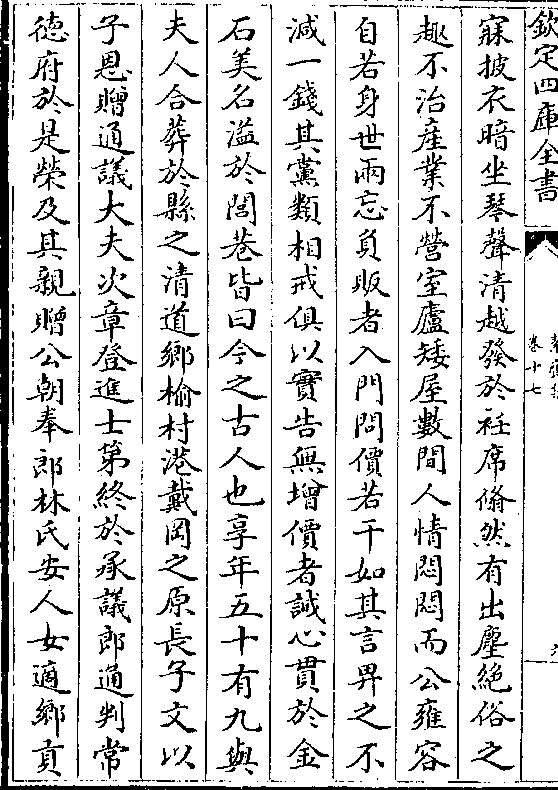 欽定四庫全書
卷十七
寐披衣暗坐琴聲清越發於衽席翛然有出塵絶俗之
趣不治産業不營室廬矮屋數間人情悶悶而公雍容
自若身世兩忘負販者入門問價若干如其言畀之不
減一錢其黨類相戒俱以實告無增價者誠心貫於金
石美名溢於閭巷皆曰今之古人也享年五十有九與
夫人合葬於縣之清道鄉榆村港戴岡之原長子文以
子恩贈通議大夫次章登進士第終於承議郎通判常
徳府於是榮及其親贈公朝奉郎林氏安人女適鄉貢